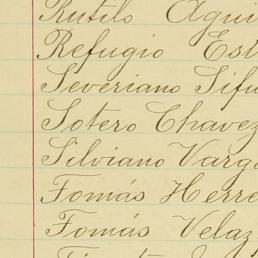 Rutilo Agui
Refugio Est
Severiano Sifu
Sotero Chavez
Silviano Varg
Tomás Herre
Tomás Velaz